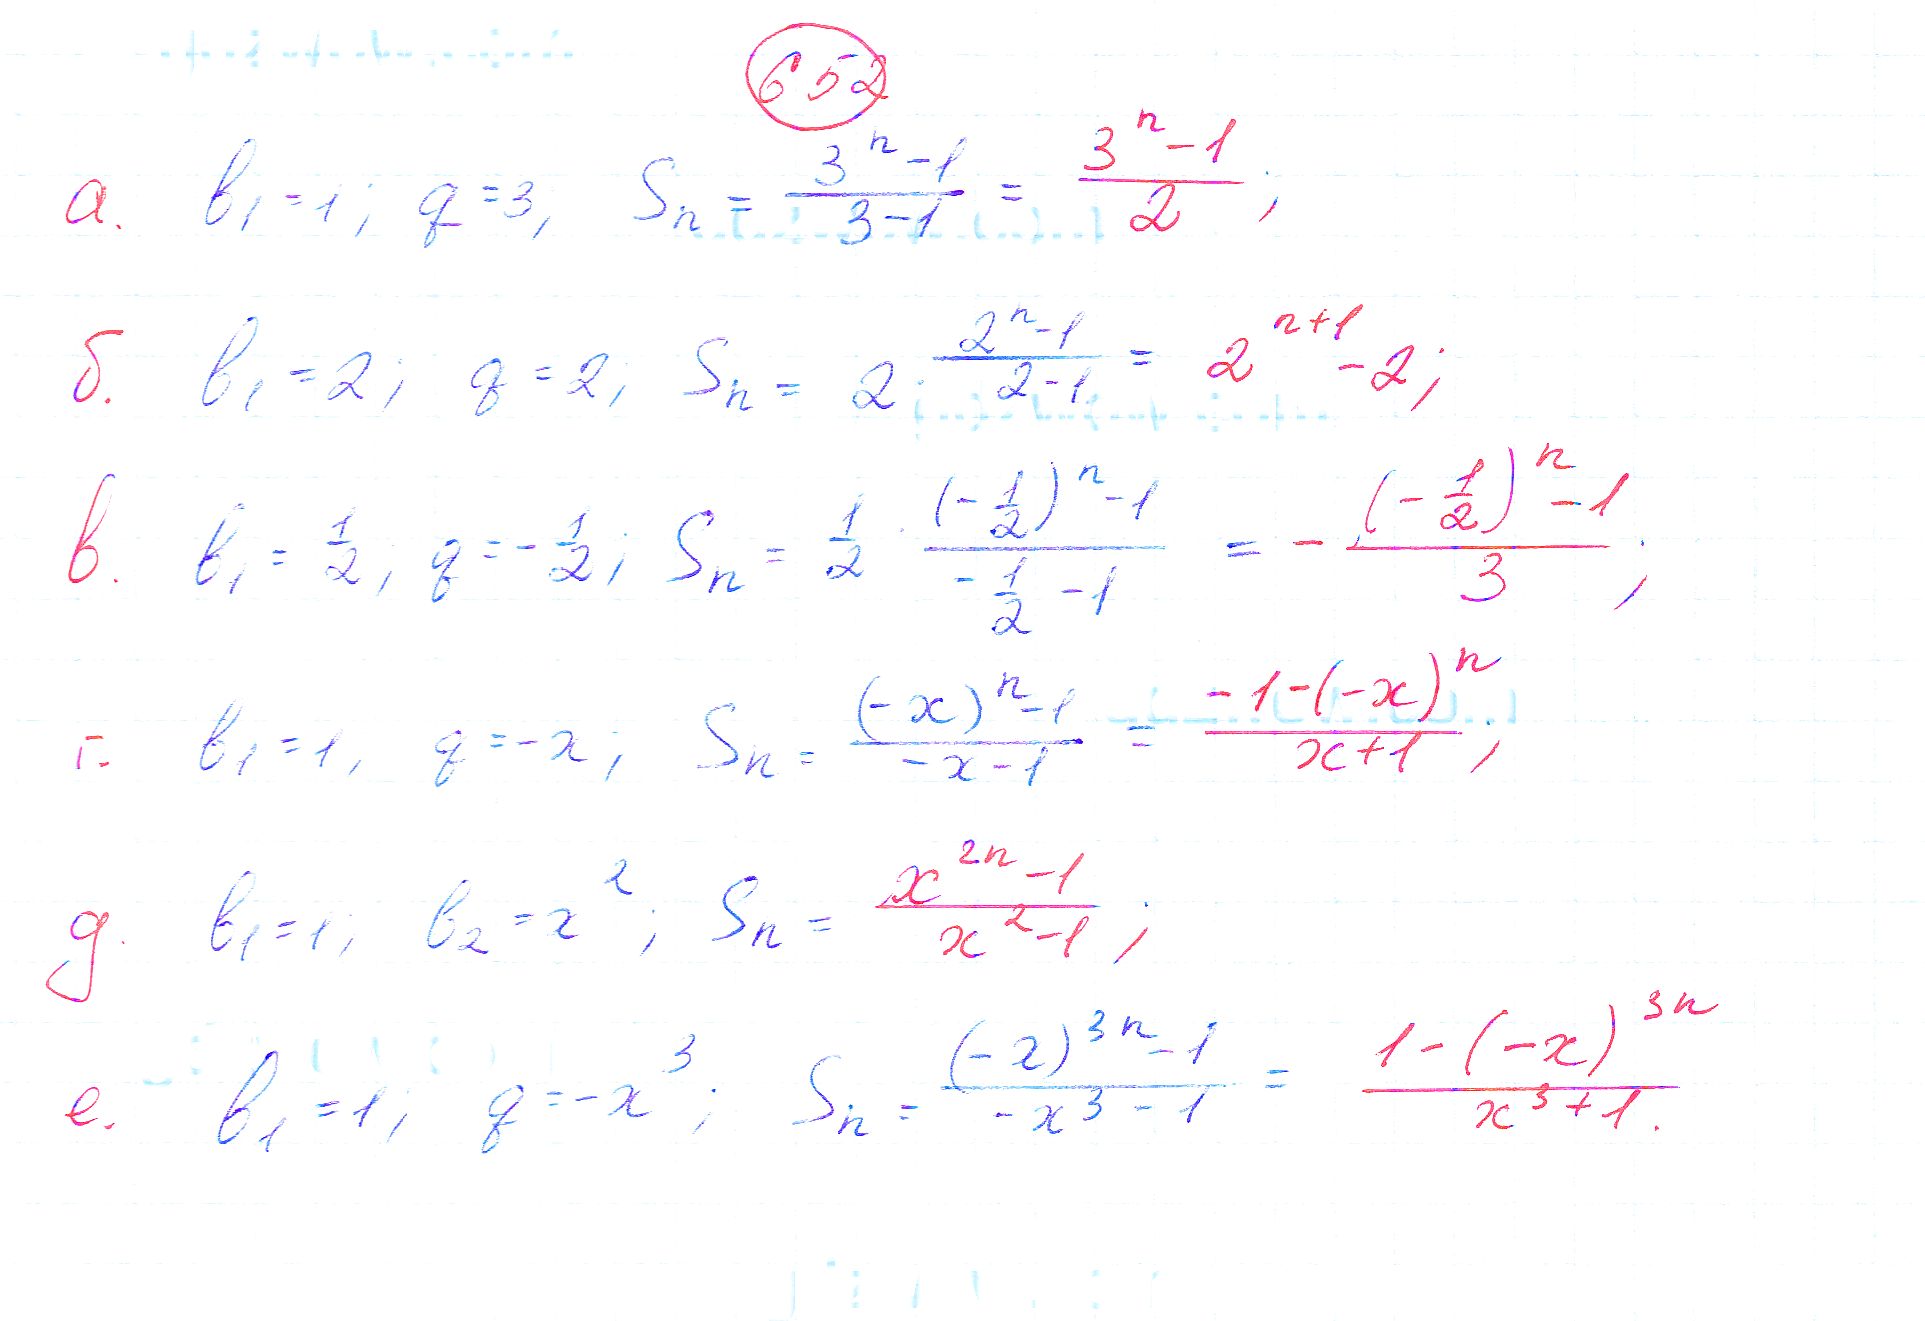 652
а. b₁ = 1; q = 3; Sₙ = (3ⁿ - 1)/(3 - 1) = (3ⁿ - 1)/2;
б. b₁ = 2; q = 2; Sₙ = 2 · (2ⁿ - 1)/(2 - 1) = 2ⁿ⁺¹ - 2;
в. b₁ = 1/2; q = -1/2; Sₙ = 1/2 · ((-1/2)ⁿ - 1)/(-1/2 - 1) = - ((-1/2)ⁿ - 1)/3;
г. b₁ = 1, q = -x; Sₙ = ((-x)ⁿ - 1)/(-x - 1) = (-1 - (-x)ⁿ)/(x + 1);
д. b₁ = 1; b₂ = x²; Sₙ = (x²ⁿ - 1)/(x² - 1);
е. b₁ = 1; q = -x³; Sₙ = ((-x)³ⁿ - 1)/(-x³ - 1) = (1 - (-x)³ⁿ)/(x³ + 1).